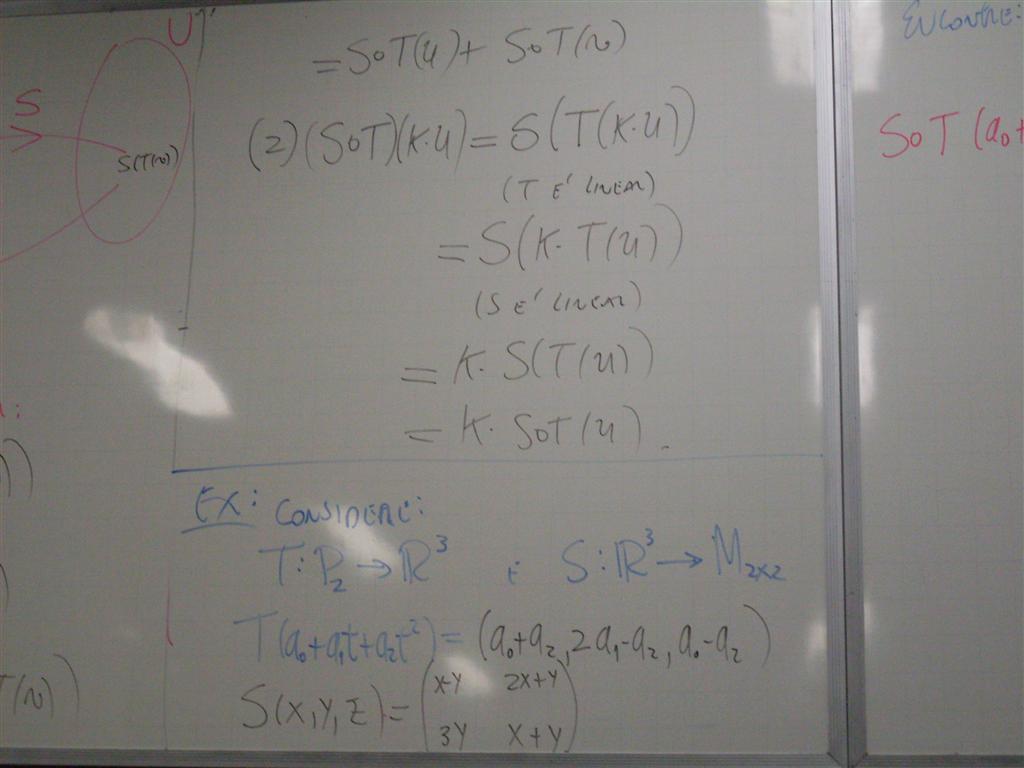 U
S
S(T(v))
T(v)
= SoT(u) + SoT(v)
(2) (SoT)(K.u) = S(T(K.u))
(T E' LINEAR)
= S(K. T(u))
(S E' LINEAR)
= K. S(T(u))
= K. SoT(u).
EX: CONSIDERE:
T: P₂ → ℝ³ E S: ℝ³ → M₂ₓ₂
T(a₀+a₁t+a₂t²) = (a₀+a₂, 2a₁-a₂, a₀-a₂)
S(X,Y,Z) = (X-Y 2X+Y
3Y X+Y)
ENCONTRE:
SoT (a₀+